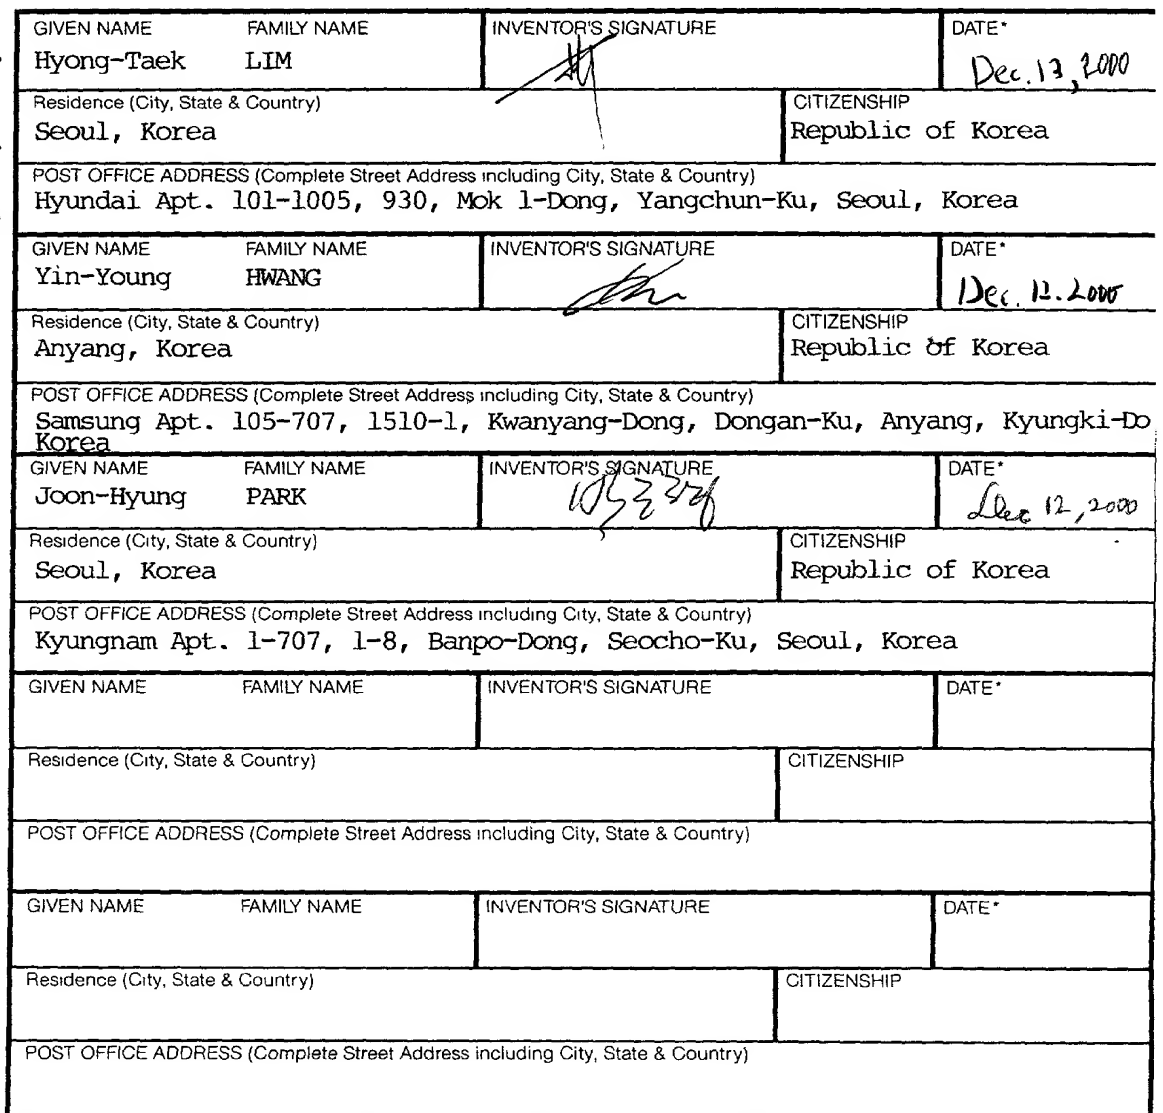 GIVEN NAME FAMILY NAME INVENTOR'S SIGNATURE DATE*
Hyong-Taek LIM Dec. 13, 2000
Residence (City, State & Country) CITIZENSHIP
Seoul, Korea Republic of Korea
POST OFFICE ADDRESS (Complete Street Address including City, State & Country)
Hyundai Apt. 101-1005, 930, Mok 1-Dong, Yangchun-Ku, Seoul, Korea
GIVEN NAME FAMILY NAME INVENTOR'S SIGNATURE DATE*
Yin-Young HWANG Dec. 12. 2000
Residence (City, State & Country) CITIZENSHIP
Anyang, Korea Republic of Korea
POST OFFICE ADDRESS (Complete Street Address including City, State & Country)
Samsung Apt. 105-707, 1510-1, Kwanyang-Dong, Dongan-Ku, Anyang, Kyungki-Do
Korea
GIVEN NAME FAMILY NAME INVENTOR'S SIGNATURE DATE*
Joon-Hyung PARK Dec 12, 2000
Residence (City, State & Country) CITIZENSHIP
Seoul, Korea Republic of Korea
POST OFFICE ADDRESS (Complete Street Address including City, State & Country)
Kyungnam Apt. 1-707, 1-8, Banpo-Dong, Seocho-Ku, Seoul, Korea
GIVEN NAME FAMILY NAME INVENTOR'S SIGNATURE DATE*
Residence (City, State & Country) CITIZENSHIP
POST OFFICE ADDRESS (Complete Street Address including City, State & Country)
GIVEN NAME FAMILY NAME INVENTOR'S SIGNATURE DATE*
Residence (City, State & Country) CITIZENSHIP
POST OFFICE ADDRESS (Complete Street Address including City, State & Country)